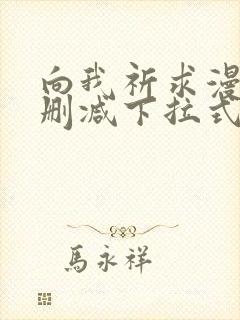 向我祈求漫
删减下拉式
馬永祥